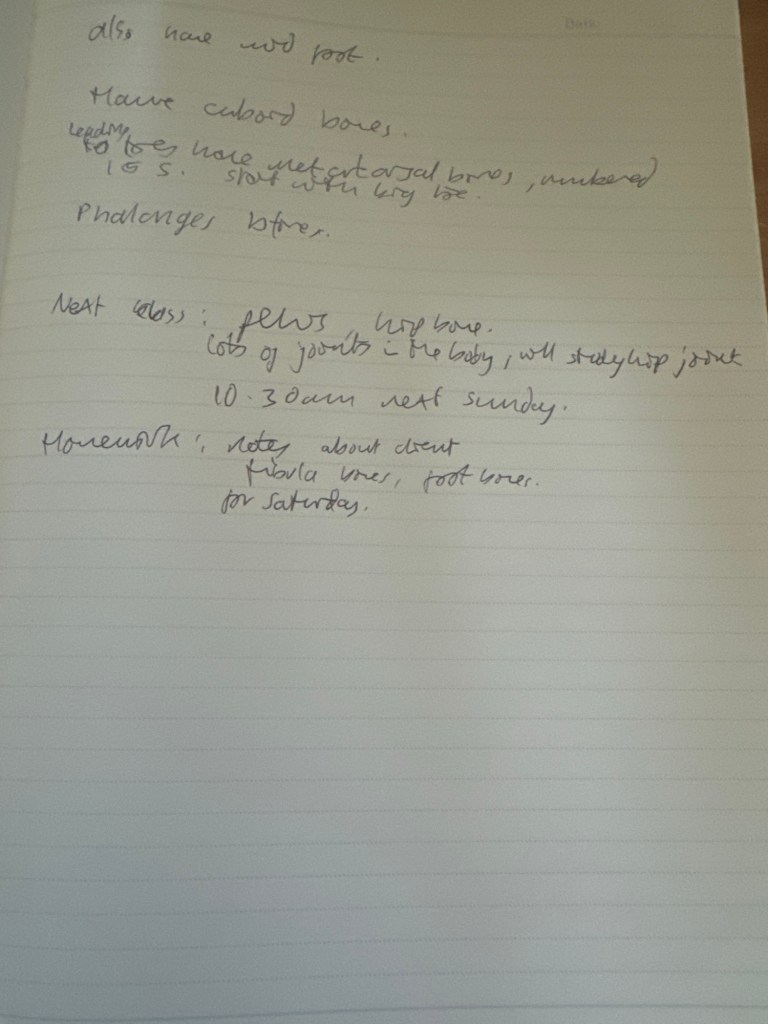 Date
also have mid foot.
Have cuboid bones.
leading
to toes have metatarsal bones, numbered
1 to 5. start with big toe.
Phalanges bones.
Next class: pelvis, hip bone.
lots of joints in the body, will study hip joint
10.30am next Sunday.
Homework: notes about client
fibula bones, foot bones.
for Saturday.